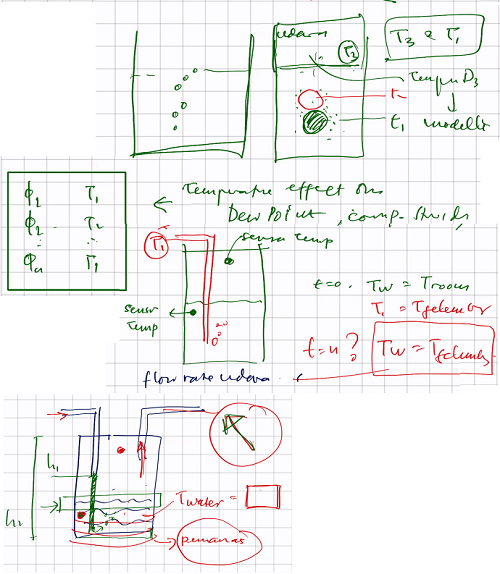 udara
T₂
T₃ ≈ T₁
Temp. D₃
t₁ modellt
φ₁ T₁
φ₂ T₂
φₙ T₁
← Temperature effect on
Dew Point, comp. study
T₁
sensor temp
sensor
Temp
t=0. Tw = Troom
T₁ = Tgelembung
t=n? Tw = Tgelembung
flow rate udara
h₁
h₂
Twater =
pemanas